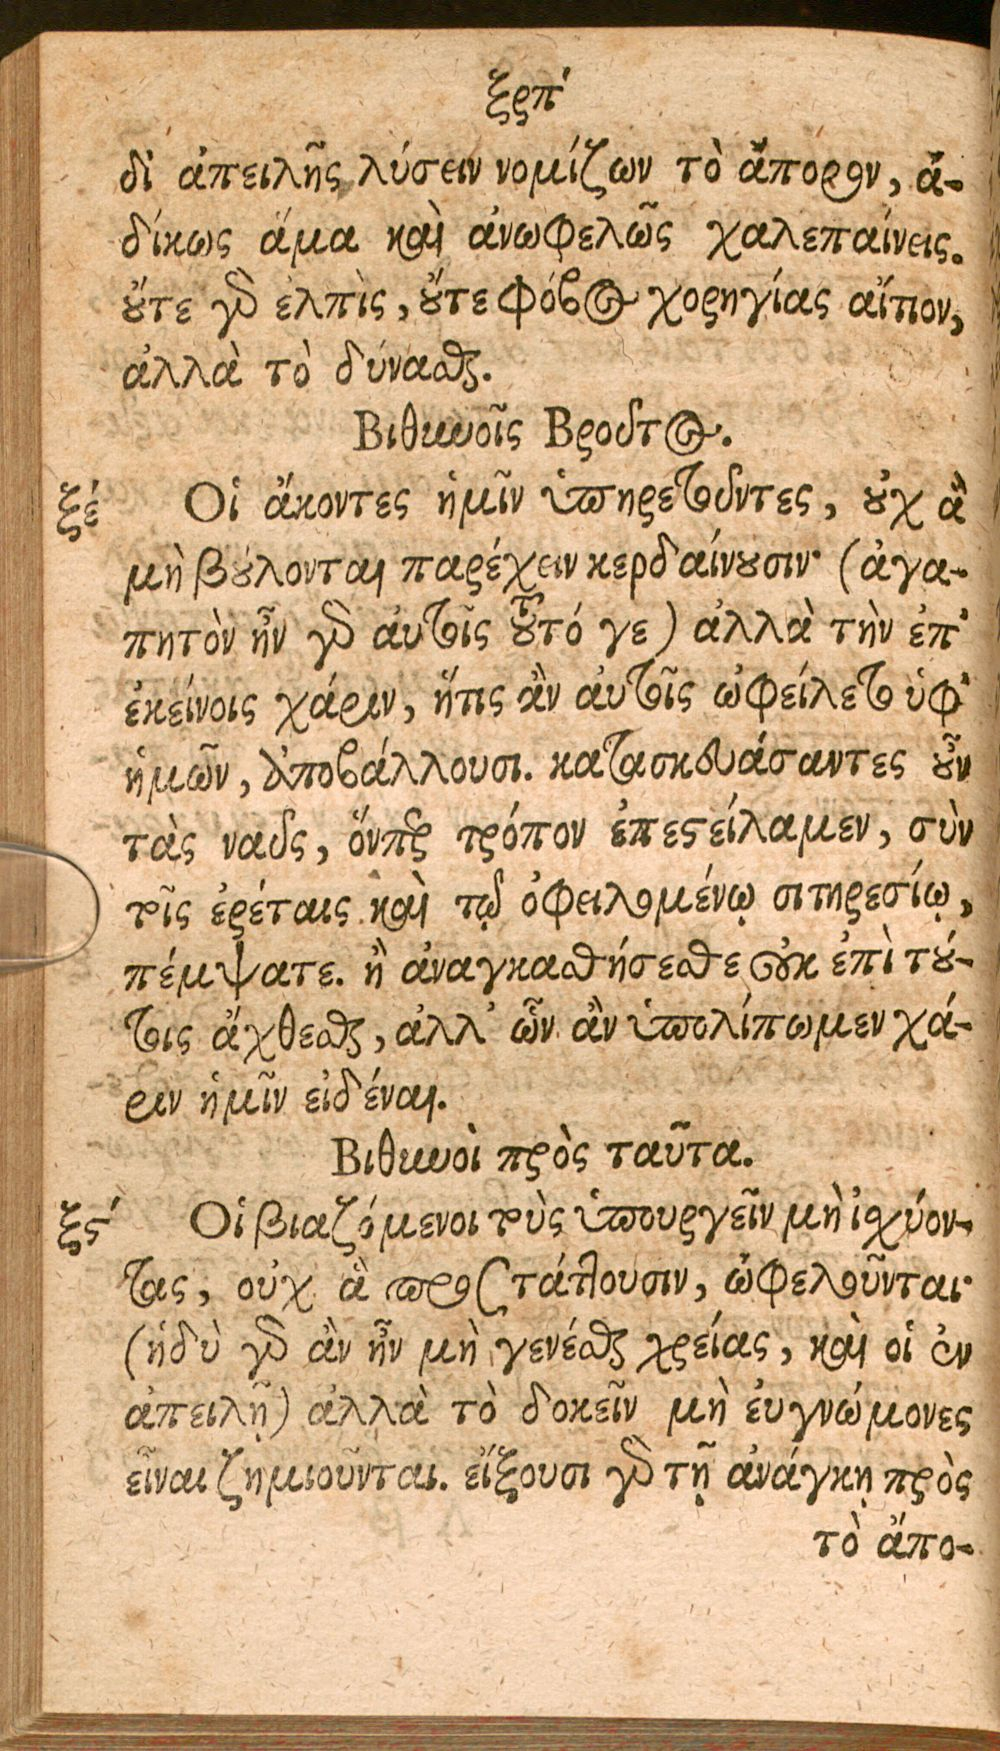 ξρπʹ
δι᾽ ἀπειλῆς λύσειν νομίζων τὸ ἄπορον, ἀ-
δίκως ἅμα καὶ ἀνωφελῶς χαλεπαίνεις.
οὔτε γὰρ ἐλπὶς, οὔτε φόβος χορηγίας αἴτιον,
ἀλλὰ τὸ δύνασθαι.
Βιθυνοῖς Βροῦτος.
ξέ Οἱ ἄκοντες ἡμῖν ὑπηρετοῦντες, οὐχ ἃ
μὴ βούλονται παρέχειν κερδαίνουσιν· (ἀγα-
πητὸν ἦν γὰρ αὐτοῖς τοῦτό γε) ἀλλὰ τὴν ἐπ᾽
ἐκείνοις χάριν, ἥτις ἂν αὐτοῖς ὠφείλετο ὑφ᾽
ἡμῶν, ἀποβάλλουσι. κατασκευάσαντες οὖν
τὰς ναῦς, ὅνπερ τρόπον ἐπεστείλαμεν, σὺν
τοῖς ἐρέταις καὶ τῷ ὀφειλομένῳ σιτηρεσίῳ,
πέμψατε. ἢ ἀναγκασθήσεσθε οὐκ ἐπὶ τού-
τοις ἄχθεσθαι, ἀλλ᾽ ὧν ἂν ὑπολίπωμεν χά-
ριν ἡμῖν εἰδέναι.
Βιθυνοὶ πρὸς ταῦτα.
ξϛʹ Οἱ βιαζόμενοι τοὺς ὑπουργεῖν μὴ ἰσχύον-
τας, οὐχ ἃ προστάττουσιν, ὠφελοῦνται·
(ἡδὺ γὰρ ἂν ἦν μὴ γενέσθαι χρείας, καὶ οἱ ἐν
ἀπειλῇ) ἀλλὰ τὸ δοκεῖν μὴ εὐγνώμονες
εἶναι ζημιοῦνται. εἴξουσι γὰρ τῇ ἀνάγκῃ πρὸς
τὸ ἄπο-